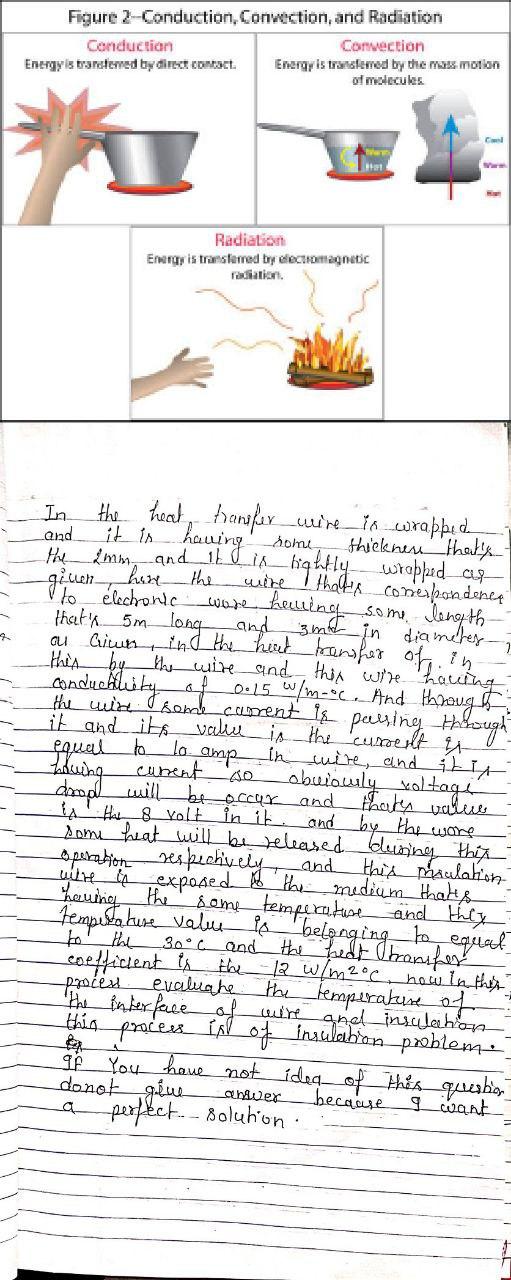 Figure 2–Conduction, Convection, and Radiation
Conduction
Energy is transferred by direct contact.
Convection
Energy is transferred by the mass motion
of molecules.
Warm
Hot
Cool
Warm
Hot
Radiation
Energy is transferred by electromagnetic
radiation.
In the heat transfer wire is wrapped
and it is having some thickness that's
the 2mm and it is tightly wrapped as
given, here the wire that's correspondence
to electronic ware having some length
that's 5m long and 3mm in diameter
as Given, in the heat transfer of, in
this by the wire and this wire having
conductivity of 0.15 W/m-°C. And through
the wire some current is passing through
it and its value is the current is
equal to 10 amp in wire, and it is
having current so obviously voltage
drop will be occur and that's value
is the 8 volt in it. and by the ware
some heat will be released during this
operation respectively, and this insulation
wire is exposed to the medium that's
having the some temperature and they
temperature value is belonging to equal
to the 30°C and the heat transfer
coefficient is the 12 W/m2°C, now in this
process evaluate the temperature of
the interface of wire and insulation
this process is of insulation problem.
If You have not idea of this question
donot give answer because I want
a perfect solution.